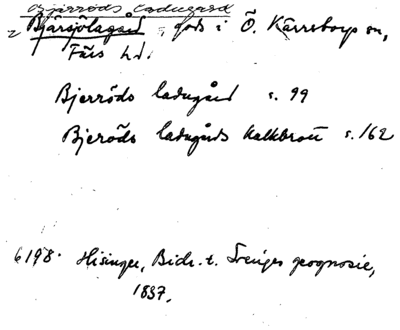 Bjärröds Ladugård
= Bjärsjölagård, gods i Ö. Kärrstorps sn,
Färs hd.
Bjerröds ladugård s. 99
Bjeröds ladugårds kalkbrott s. 162
6198. Hisinger, Bidr. t. Sveriges geognosie,
1837.